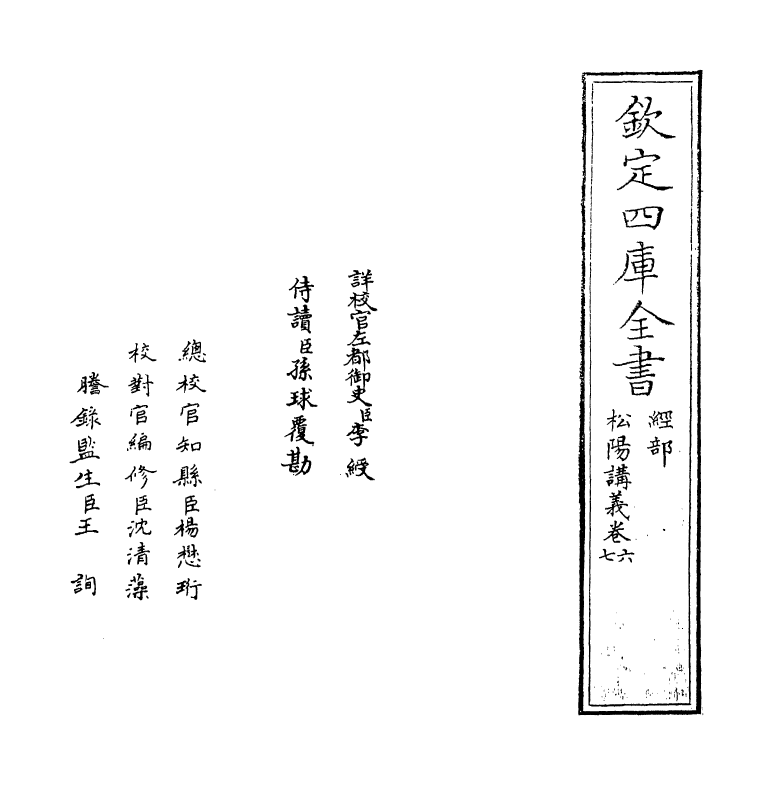 欽定四庫全書
經部
松陽講義卷六七
詳校官左都御史臣李綬
侍讀臣孫球覆勘
總校官知縣臣楊懋珩
校對官編修臣沈清藻
謄錄監生臣王詢